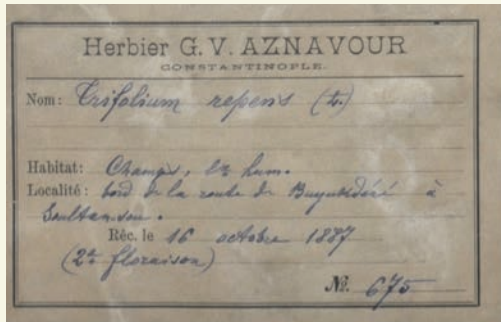 Herbier G. V. AZNAVOUR
CONSTANTINOPLE.
Nom: Trifolium repens (L.)
Habitat: Champs, lx hum.
Localité: bord de la route de Buyukdéré à
Soultan-sou.
Réc. le 16 octobre 1887
(2e floraison)
№. 675